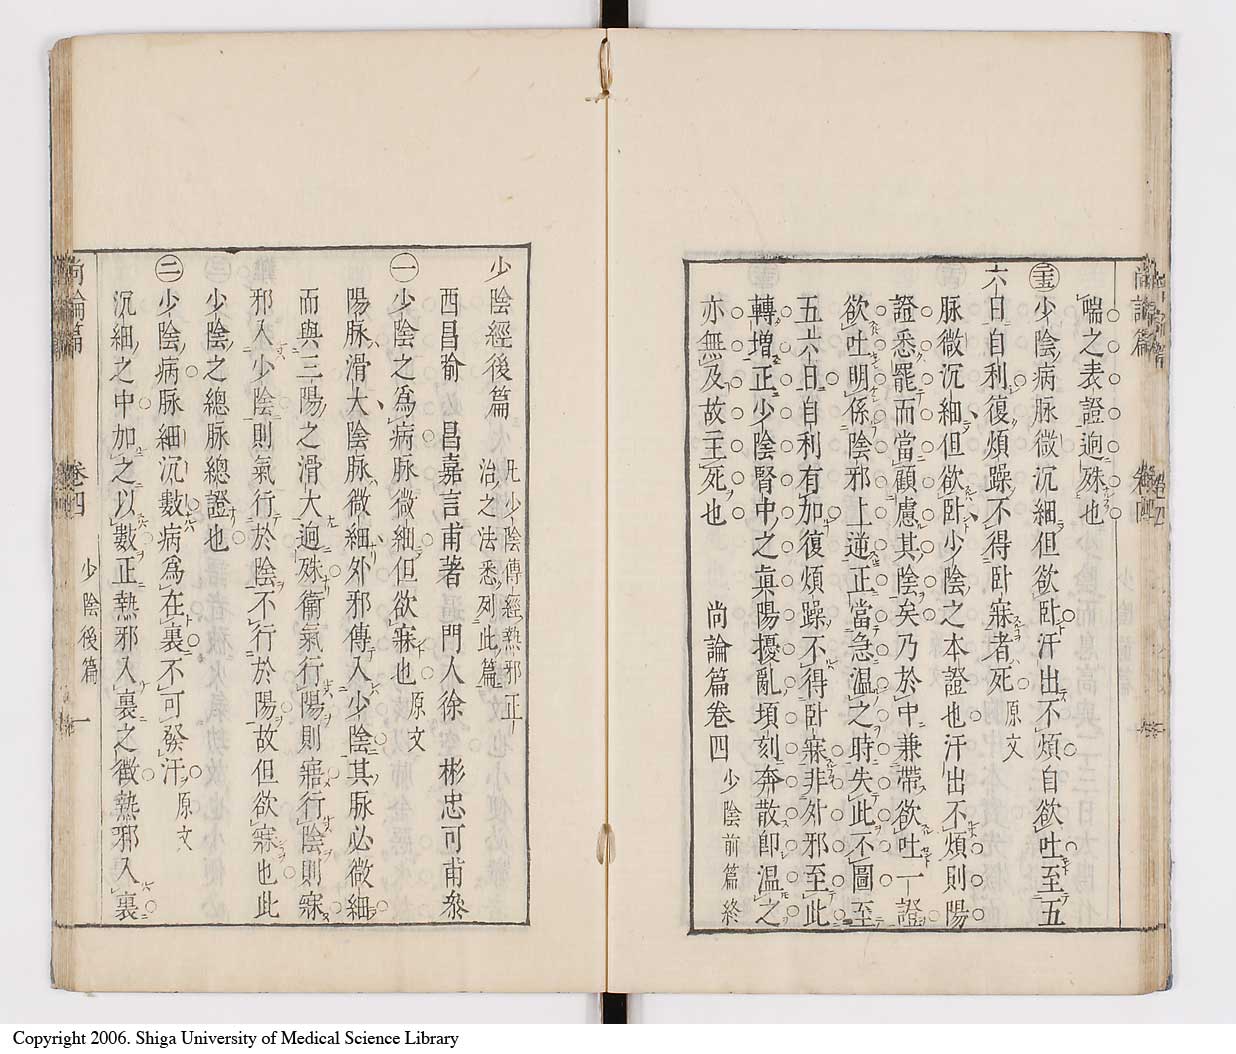 喘之表證迥殊也
㊄少陰病脉微沉細但欲卧汗出不煩自欲吐至五
六日自利復煩躁不得卧寐者死 原文
脉微沉細但欲卧少陰之本證也汗出不煩則陽
證悉罷而當顧慮其陰矣乃於中兼帶欲吐一證
欲吐明係陰邪上逆正當急溫之時失此不圖至
五六日自利有加復煩躁不得卧寐非外邪至此
轉增正少陰腎中之眞陽擾亂頃刻奔散即溫之
亦無及故主死也
尚論篇卷四 少陰前篇終
少陰經後篇 凡少陰傳經熱邪正
治之法悉列此篇
西昌喻 昌嘉言甫著 門人徐 彬忠可甫叅
㊀少陰之爲病脉微細但欲寐也 原文
陽脉滑大陰脉微細外邪傳入少陰其脉必微細
而與三陽之滑大迥殊衞氣行陽則寤行陰則寐
邪入少陰則氣行於陰不行於陽故但欲寐也此
少陰之總脉總證也
㊁少陰病脉細沉數病爲在裏不可發汗 原文
沉細之中加之以數正熱邪入裏之徵熱邪入裏
尚論篇 卷四 少陰後篇 一
Copyright 2006. Shiga University of Medical Science Library